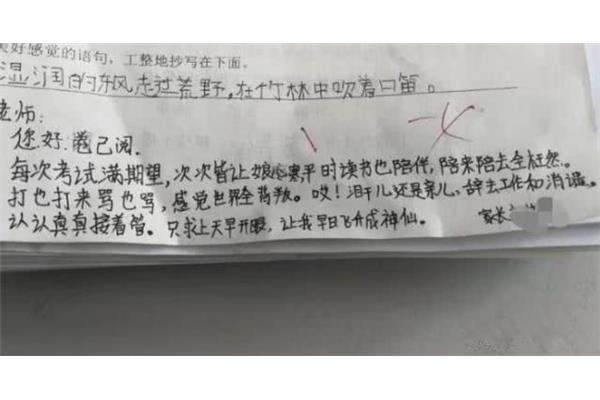 美好感觉的语句，工整地抄写在下面。
湿润的东风走过荒野，在竹林中吹着口笛。
老师：
您好.卷已阅.
每次考试满期望，次次皆让娘心寒平时读书也陪伴，陪来陪去全枉然。
打也打来骂也骂，感觉世界全背叛。哎！泪干儿还是亲儿，辞去工作和消遣。
认认真真接着管。只求上天早开眼，让我早日飞升成神仙。
家长